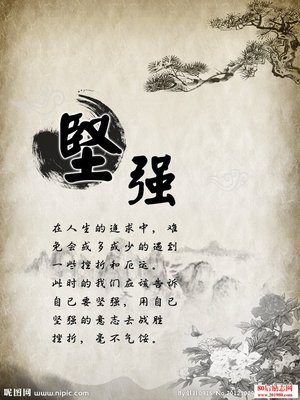 堅强
在人生的追求中，难
免会或多或少的遇到
一些挫折和厄运。
此时的我们应该告诉
自己要坚强，用自己
坚强的意志去战胜
挫折，毫不气馁。
昵图网
www.nipic.com
80后励志网
www.201980.com